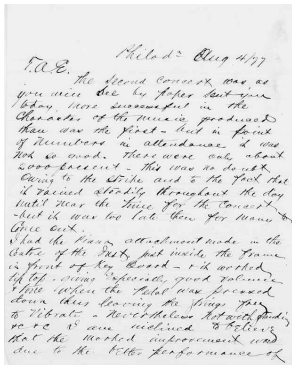 Philada Aug 4/77
T.A.E.
The second concert, was as
you will see by paper sent you
today, more successful in the
character of the music produced
than was the first - but in point
of numbers in attendance it was
not so good. There were only about
2000 present - This was no doubt
owing to the strike and to the fact that
it rained steadily throughout the day
until near the time for the concert
- but it was too late then for many to
come out.
I had the Piano attachment made in the
centre of the Inst, just inside the frame
in front of key board - & it worked
tip top - giving especially good volume
& tone when the Pedal was pressed
down thus leaving the strings free
to vibrate - Nevertheless notwithstanding
&c &c I am inclined to believe
that the marked improvement was
due to the better performance of